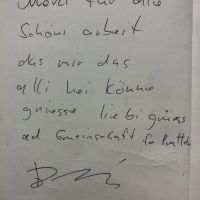 Merci für die
Schöni arbeit
das mir das
alli hei könne
gniesse liebi grüess
ad Gemeinschaft